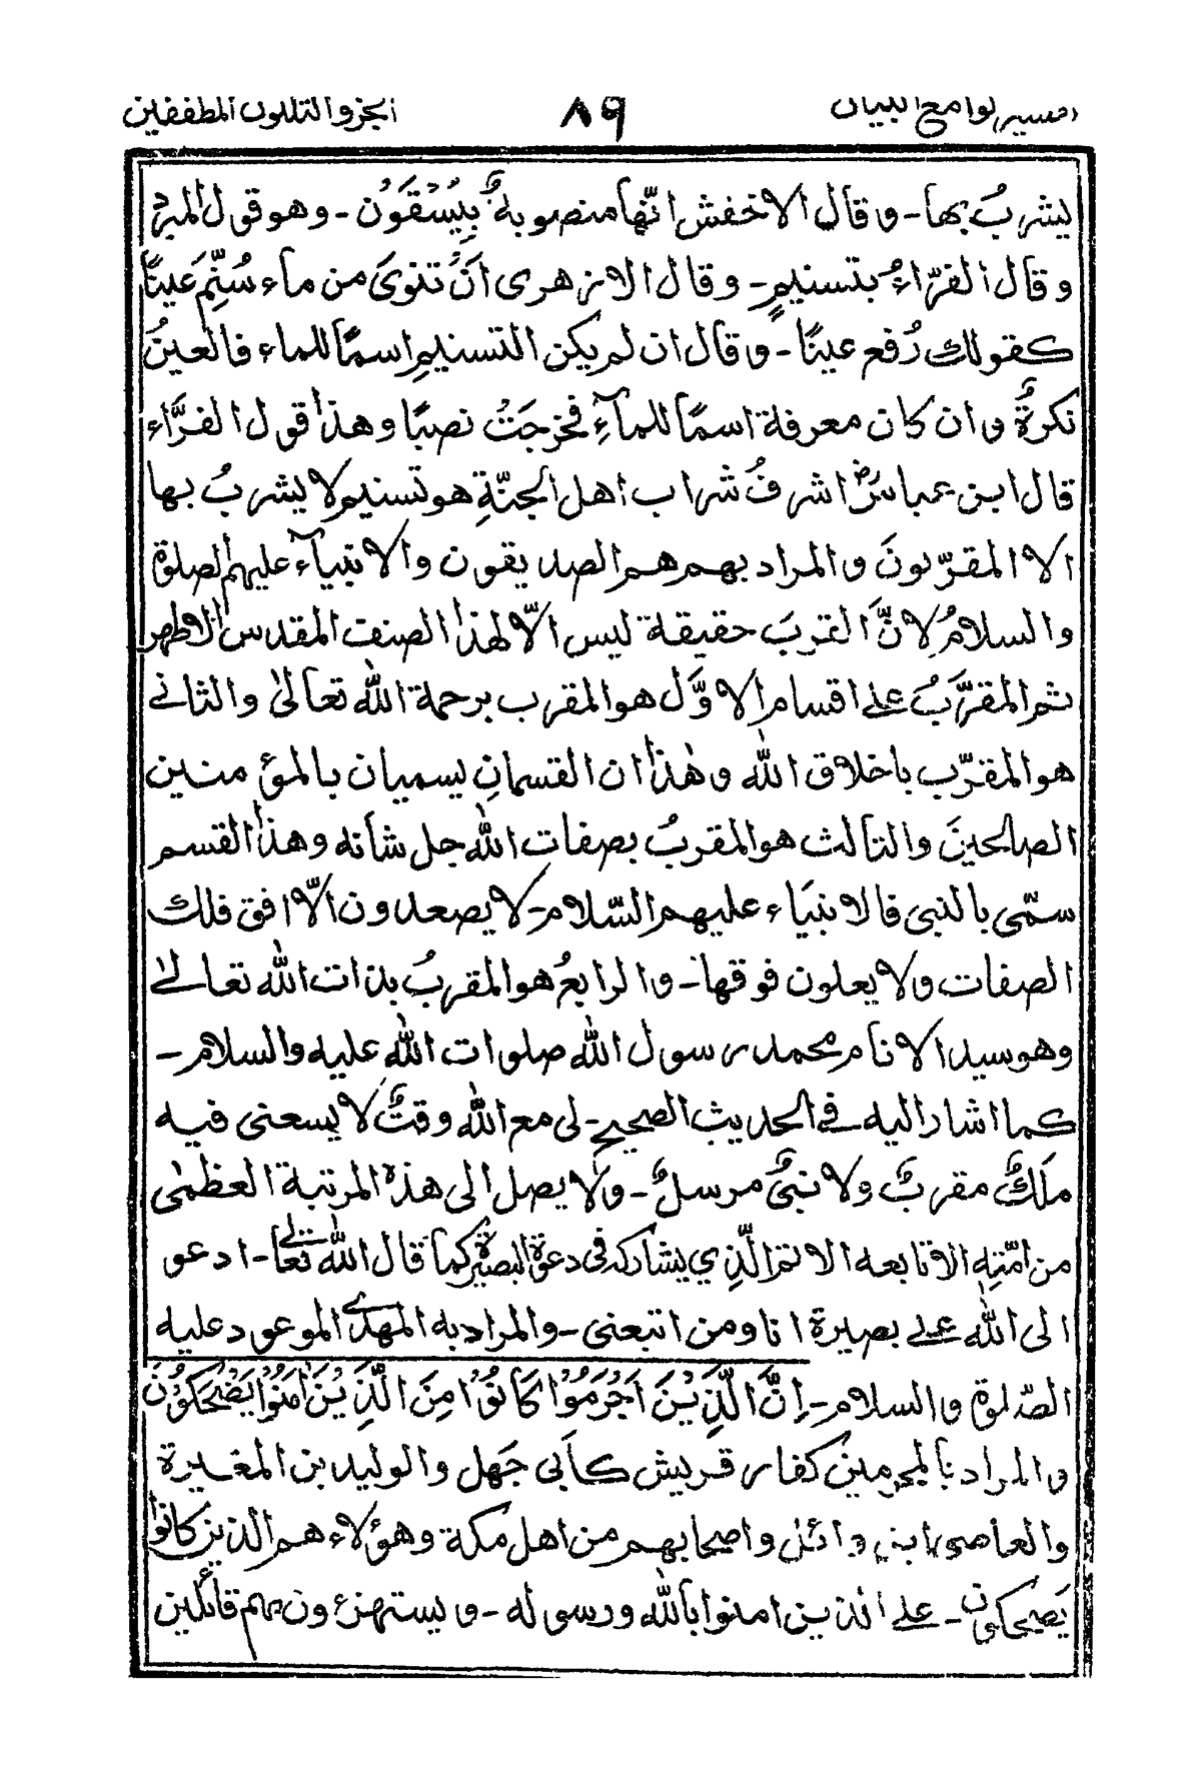 تفسير لوامع البيان ٨٩ الجزو الثلثون المطففين
يشربُ بها - وقال الاخفش انّها منصوبةٌ بِيُسْقَوْنَ - وهو قول المبرد
وقال الفرّاءُ بتسنيمٍ - وقال الازهرى اَنْ تنوىَ من ماء سُنِّمَ عَينًا
كقولك رُفع عينًا - وقال ان لم يكن التسنيمِ اسمًا للماء فالعينُ
نكرةٌ وان كان معرفة اسمًا للمآءِ فخرجَتْ نصبًا وهذا قول الفرَّاء
قال ابن عباسؓ اشرفُ شراب اهل الجنّةِ هو تسنيم لا يشربُ بها
الا المقرّبونَ والمراد بهم هم الصديقون والانبيآء عليهم الصلوة
والسلامُ لانَّ القربَ حقيقة ليس الّا لهذا الصنف المقدس الاطهر
ثم المقرَّبُ على اقسام الاوَّل هو المقرب برحمة الله تعالىٰ والثانے
هو المقرّب باخلاق الله وهٰذان القسمانِ يسميان بالمؤمنين
الصالحينَ والثالث هو المقربُ بصفات الله جل شانه وهذا القسم
سمّى بالنبى فالانبيَاء عليهم السّلام - لا يصعدون الّا افق فلك
الصفات ولا يعلون فوقها - والرابعُ هو المقربُ بذات الله تعالےٰ
وهو سيد الانام محمد رسول الله صلوات الله عليه والسلام -
كما اشار اليه فى الحديث الصحيح - لى مع الله وقتٌ لا يسعنى فيه
ملَكٌ مقربٌ ولا نبىٌّ مرسلٌ - ولا يصل الى هذه المرتبة العظمٰى
من امّتهٖ الا تابعه الاتم الّذي يشاركه فى دعوة البصيرة كما قال الله تعالےٰ - ادعو
الى الله على بصيرة انا ومن اتبعنى - والمراد به المهدى الموعود عليه
الصّلوة والسلام - اِنَّ الَّذِيْنَ اَجْرَمُوْا كَانُوْا مِنَ الَّذِيْنَ اٰمَنُوْا يَضْحَكُوْنَ
والمراد بالمجرمين كفار قريش كأبى جَهل والوليد بن المغيرة
والعاصى ابن وائل واصحابهم من اهل مكة وهؤلاء هم الذين كانوا
يَضحكون - على الذين امنوا بالله ورسوله - ويستهزءون بهم قائلين